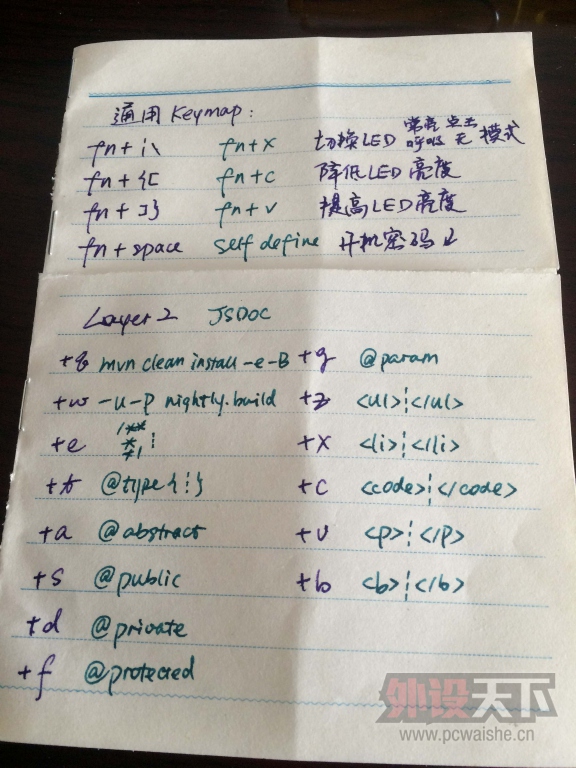 通用 Keymap:
常亮 点击
fn + |\ fn + X 切换LED 呼吸 无 模式
fn + {[ fn + C 降低LED亮度
fn + ]} fn + V 提高LED亮度
fn + space self define 开机密码
Layer 2 JSDOC
+q mvn clean install -e -B +g @param
+w -u -P nightly.build +z <ul>¦</ul>
/**
+e * ¦ +x <li>¦</li>
*/
+t @type{¦} +c <code>¦</code>
+a @abstract +v <p>¦</p>
+s @public +b <b>¦</b>
+d @private
+f @protected
外设天下
www.pcwaishe.cn